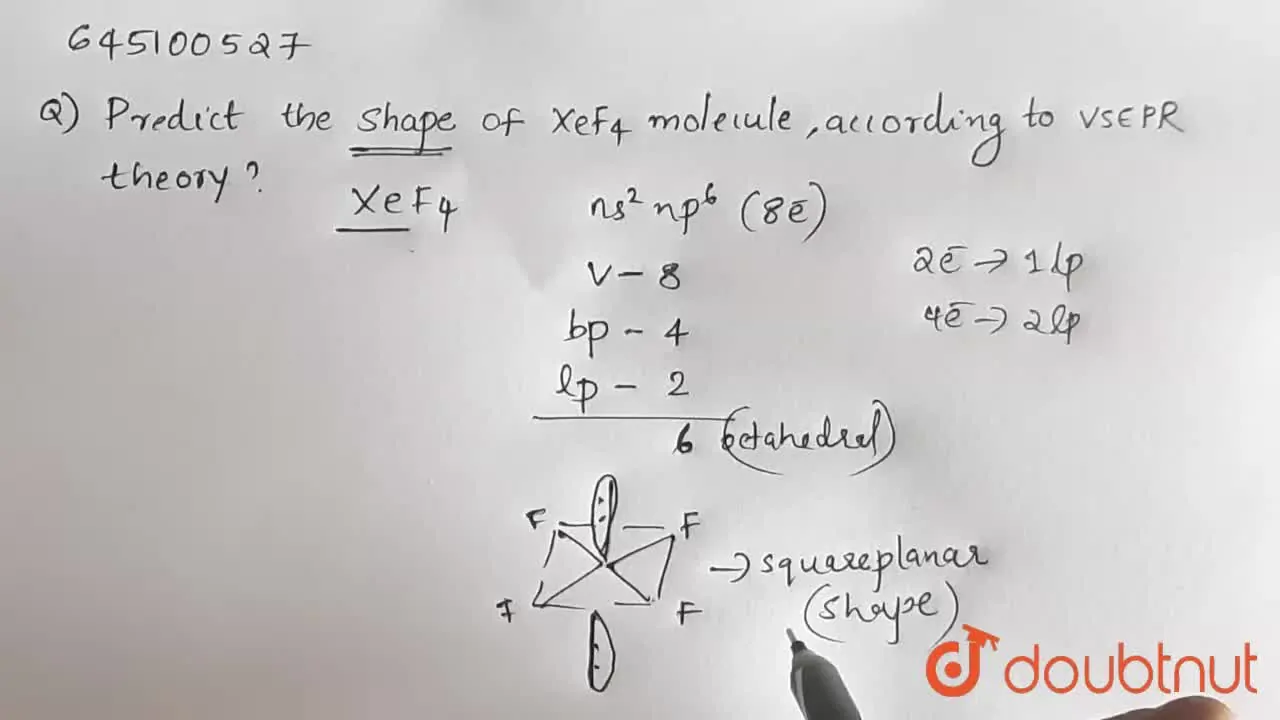 645100527
Q) Predict the shape of XeF4 molecule, according to VSEPR
theory?
XeF4
ns² np⁶ (8ē)
V - 8
2ē → 1lp
bp - 4
4ē → 2lp
lp - 2
6 (octahedral)
F F
→ squareplanar
F F
(shape)
doubtnut